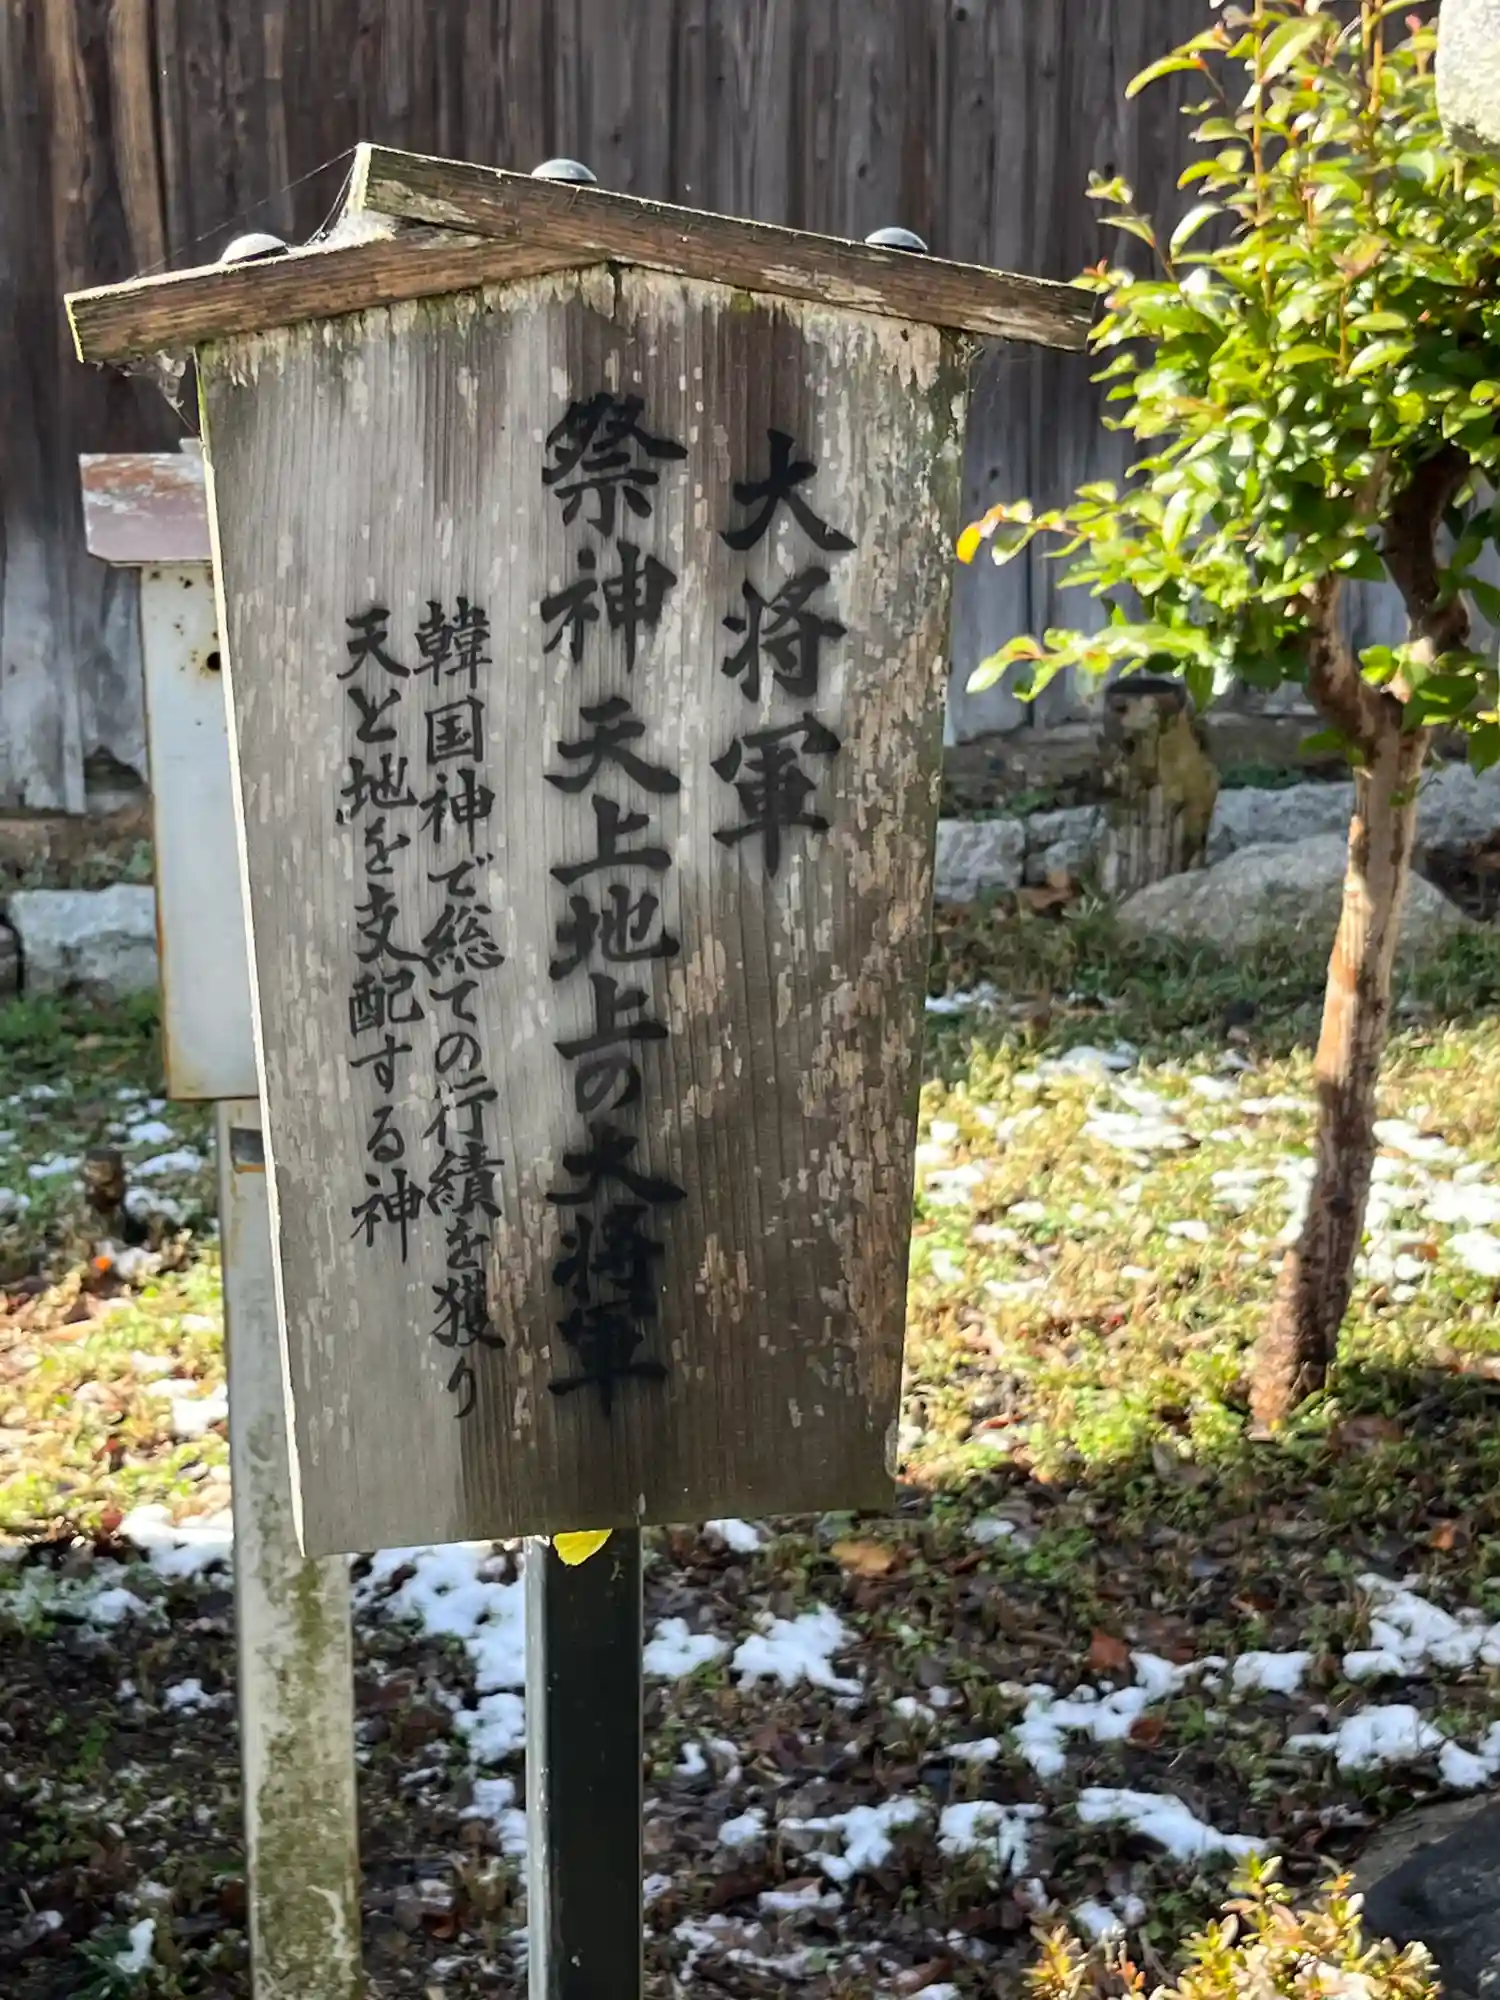 大将軍
祭神 天上地上の大将軍
韓国神で総ての行績を獲り
天と地を支配する神